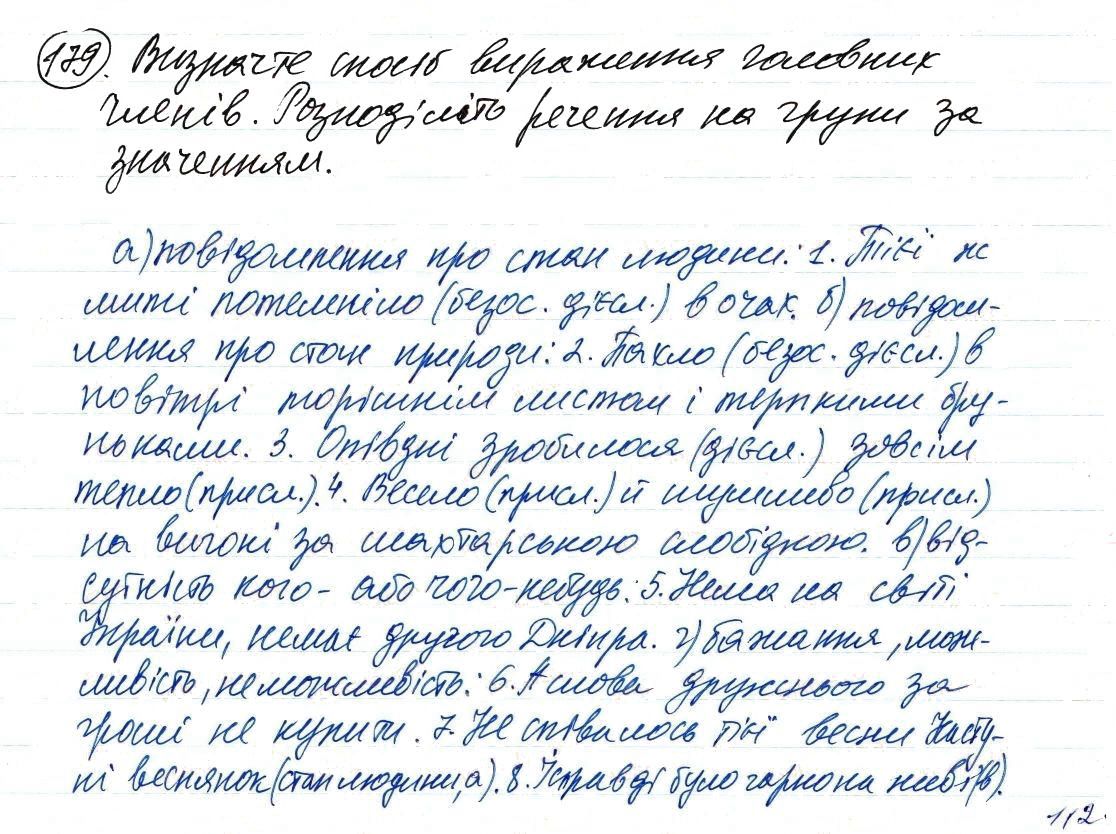 179. Визначте спосіб вираження головних
членів. Розподіліть речення на групи за
значенням.
а) повідомлення про стан людини: 1. Тієї ж
миті потемніло (безос. дієсл.) в очах. б) повідом-
лення про стан природи: 2. Пахло (безос. дієсл.) в
повітрі торішнім листом і терпкими бру-
ньками. 3. Опівдні зробилося (дієсл.) зовсім
тепло (присл.). 4. Весело (присл.) й шумливо (присл.)
на вигоні за шахтарською слобідкою. в) від-
сутність кого- або чого-небудь: 5. Нема на світі
України, немає другого Дніпра. г) бажання, мож-
ливість, неможливість: 6. А слова дружнього за
гроші не купити. 7. Не співалось тієї весни Насту-
ні веснянок (стан людини, а). 8. І справді було гарно на небі (в).
112.